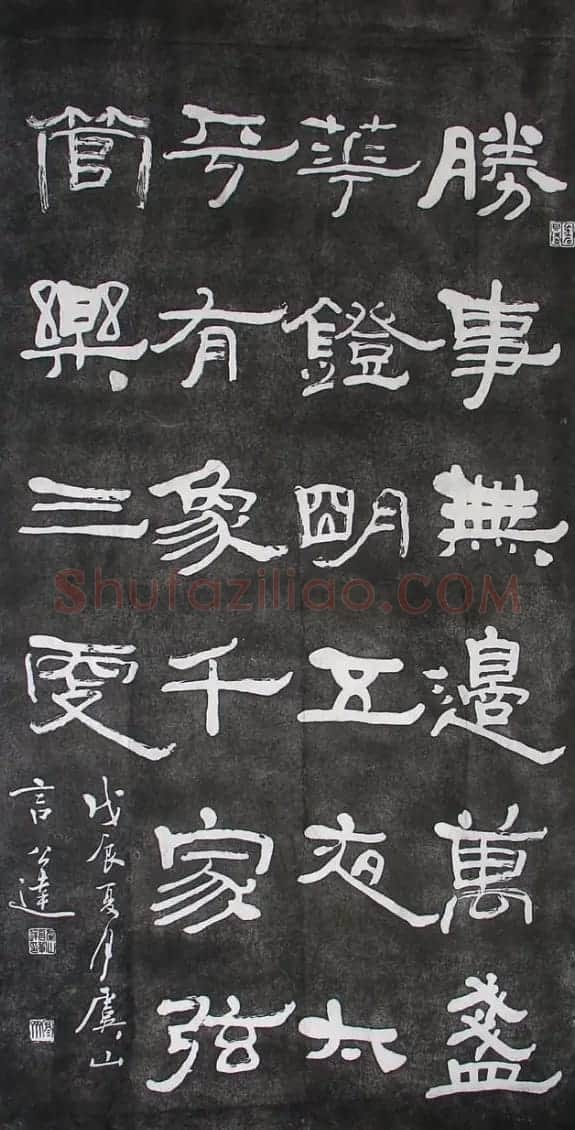 勝事無邊萬盞
華鐙朙五夜太
平有象千家弦
管樂三更
戊辰夏月虞山
言公達
Shufaziliao.COM